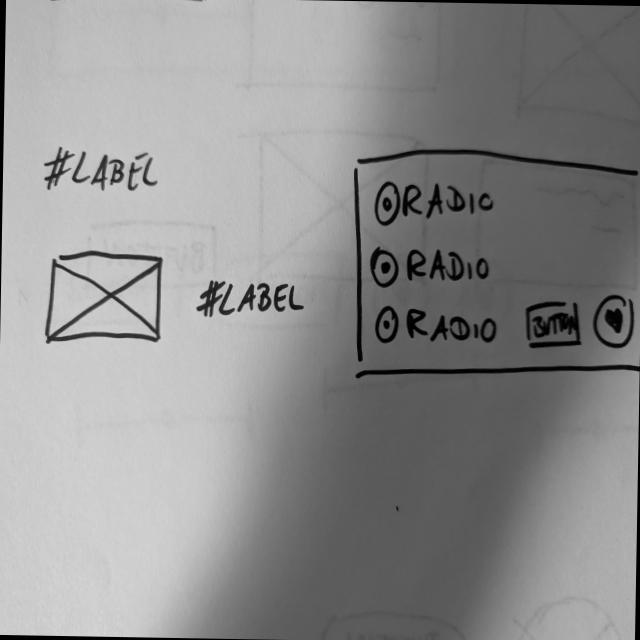 #LABEL
#LABEL
RADIO
RADIO
RADIO
BUTTON